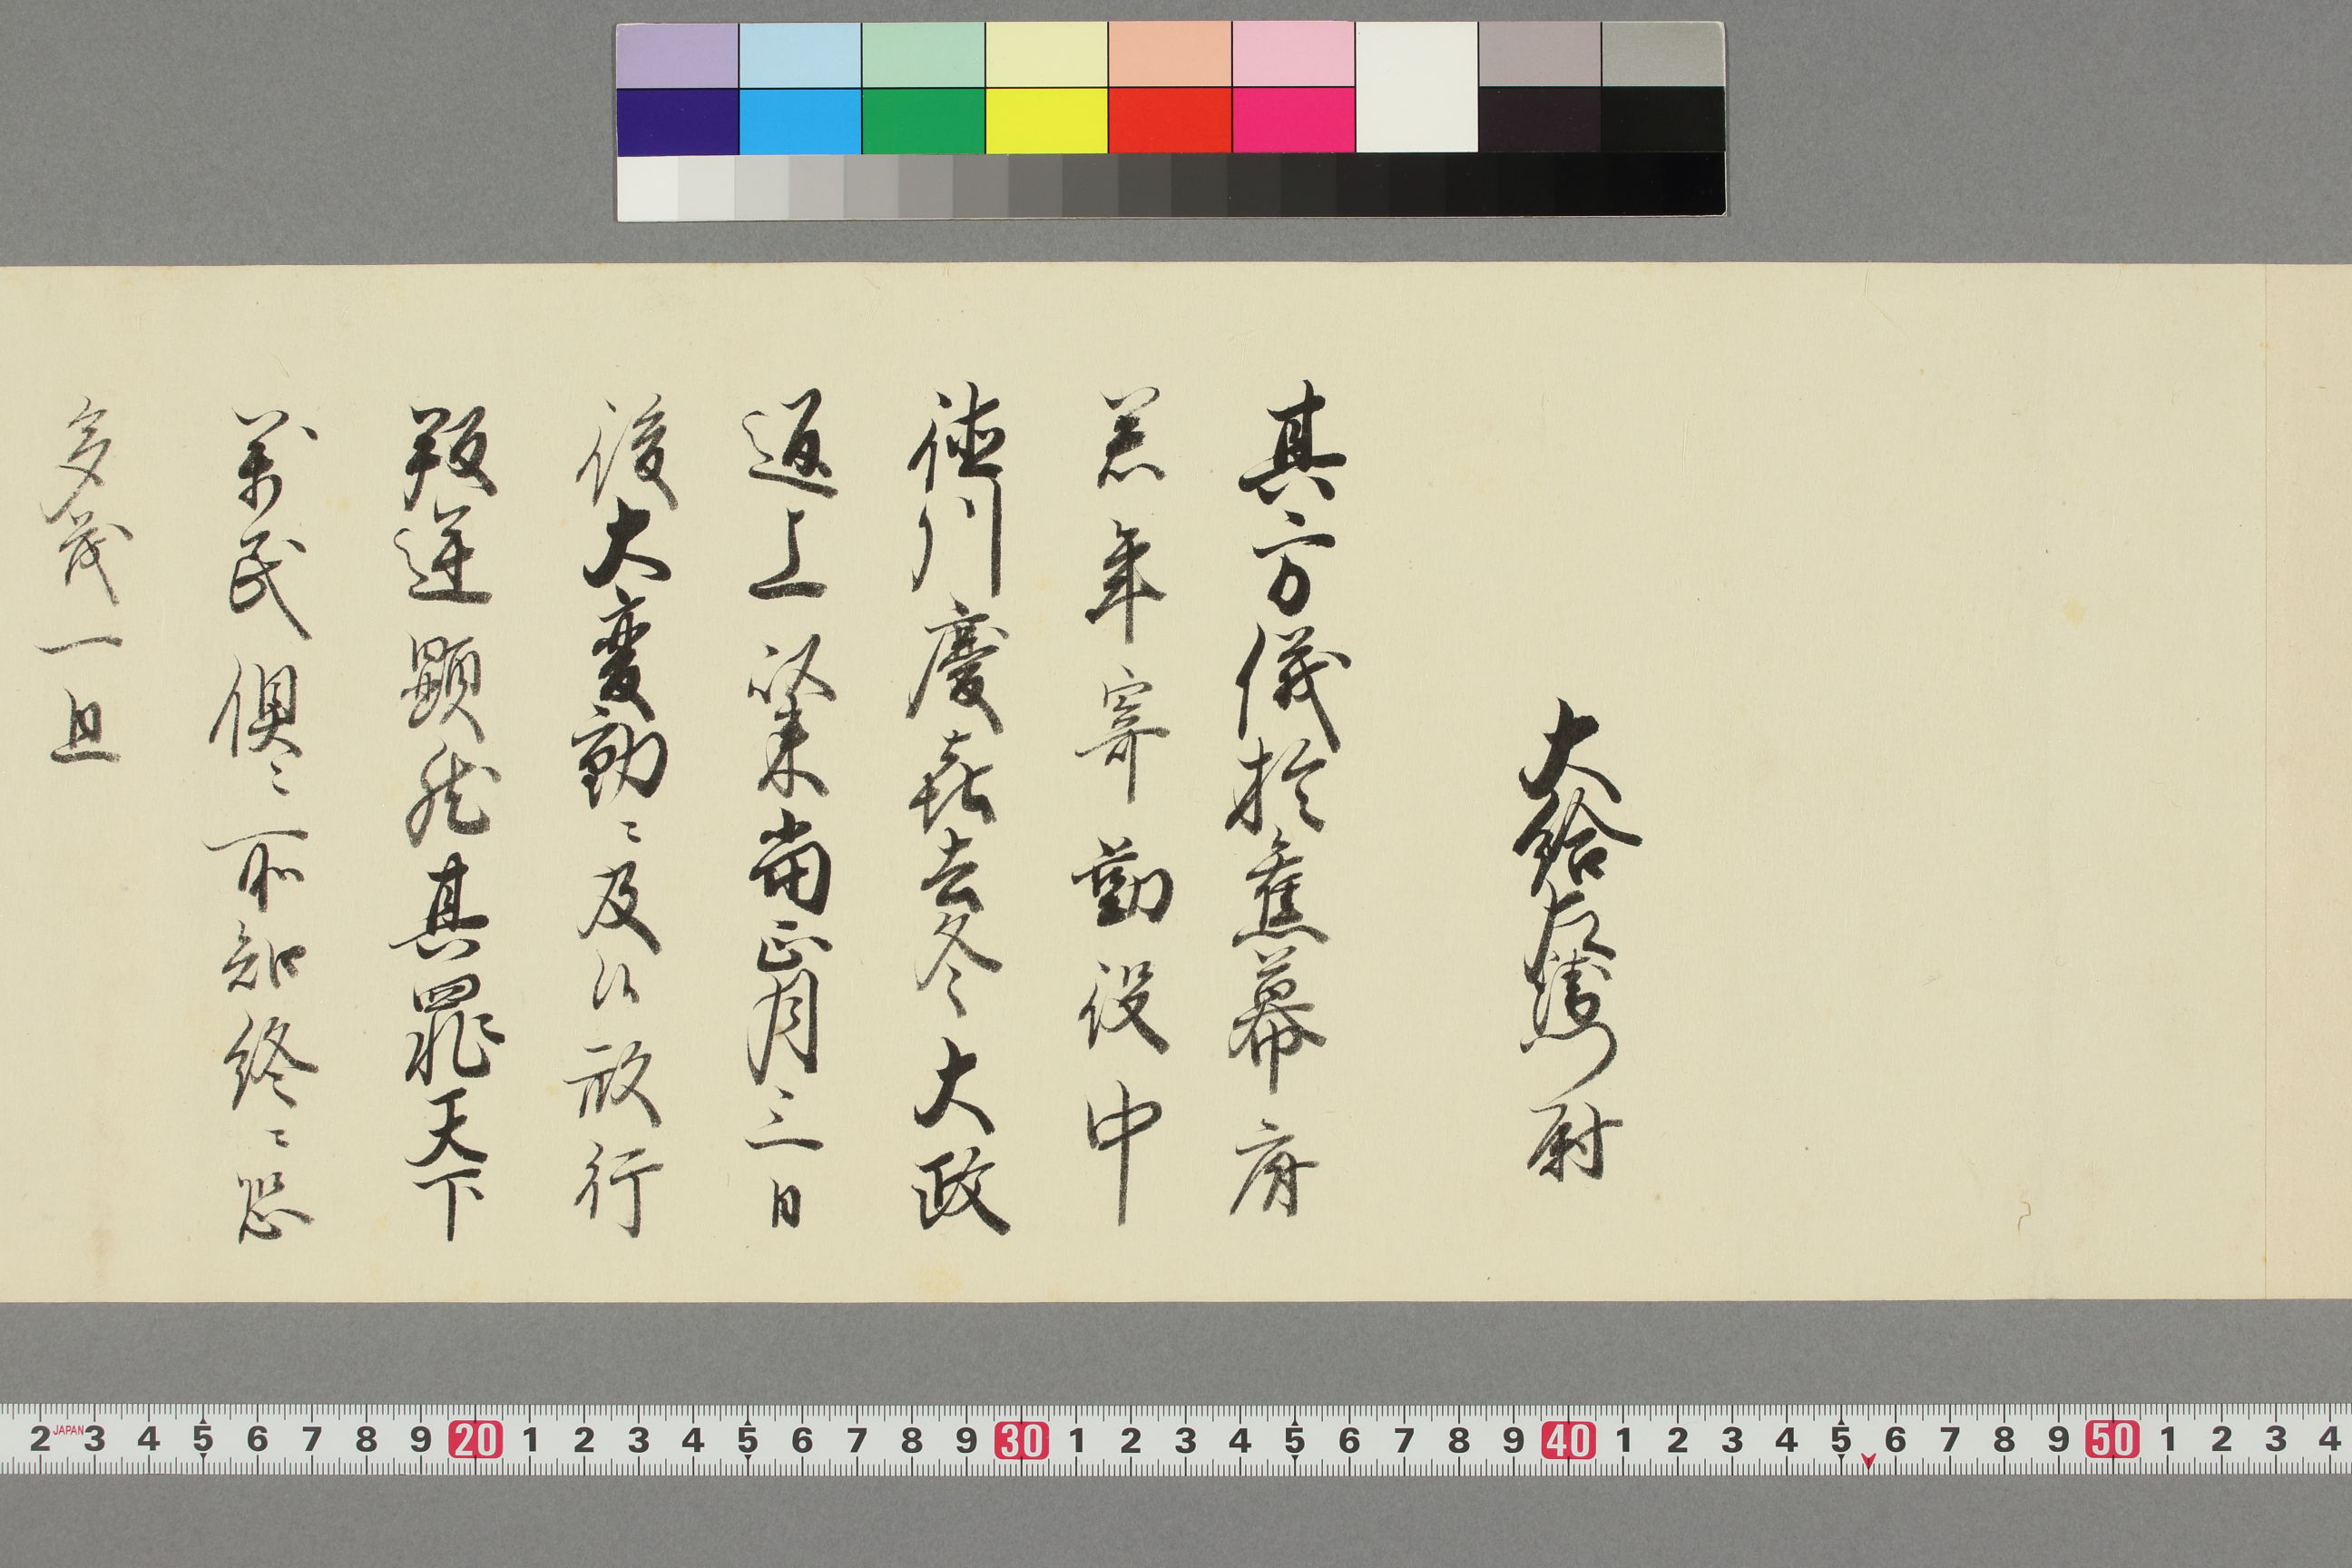 大給左衛門尉
其方儀於舊幕府
若年寄勤役中
徳川慶喜去冬大政
返上以来當正月三日
後大変動ニ及行
叛逆顕然其罪天下
萬民倶ニ所知終ニ恐
多茂一旦
2 JAPAN 3 4 5 6 7 8 9 20 1 2 3 4 5 6 7 8 9 30 1 2 3 4 5 6 7 8 9 40 1 2 3 4 5 6 7 8 9 50 1 2 3 4